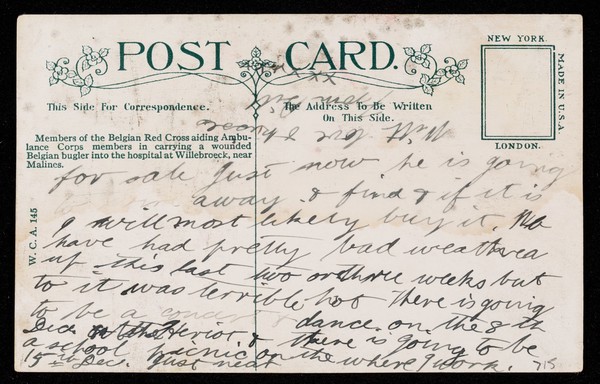 POST CARD.
NEW YORK.
MADE IN U.S.A.
LONDON.
This Side For Correspondence.
The Address To Be Written
On This Side.
Members of the Belgian Red Cross aiding Ambu-
lance Corps members in carrying a wounded
Belgian bugler into the hospital at Willebroeck, near
Malines.
W. C. A. 145
for sale just now he is going
away. & find & if it is
I will most likely buy it. We
have had pretty bad weather
up this last two or three weeks but
to it was terrible hot there is going
to be a concert & dance. on. the 8th
Dec. at the Heriot, & there is going to be
a school picnic on the
15th Dec. just near where I work.
715